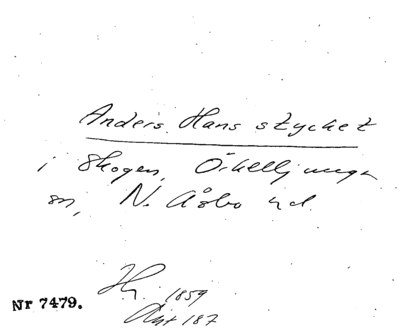 Anders Hans stycket
i skogen, Örkelljunga
sn, N. Åsbo hd
Nr 7479.
1859
Akt 187